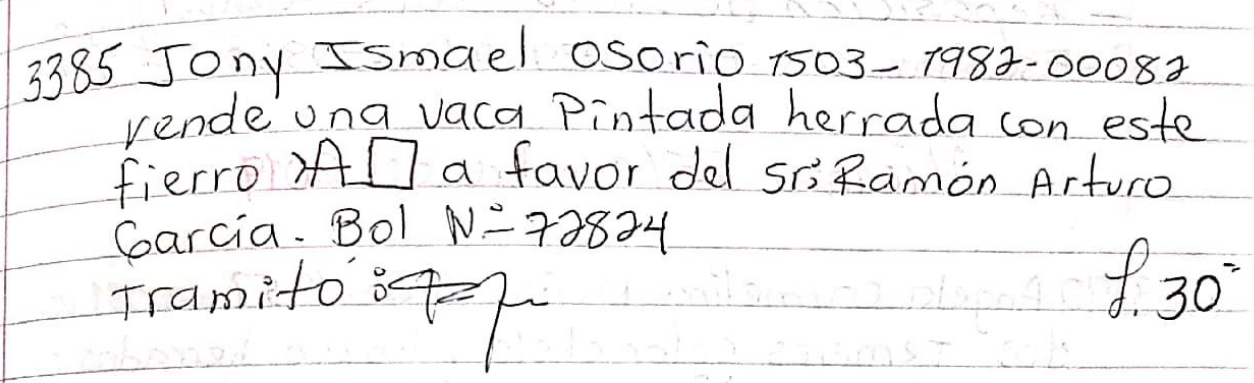 3385 Jony Ismael Osorio 1503-1982-00082
vende una vaca Pintada herrada con este
fierro a favor del Sr: Ramón Arturo
García. Bol Nº 72824
Tramitó:
L. 30=